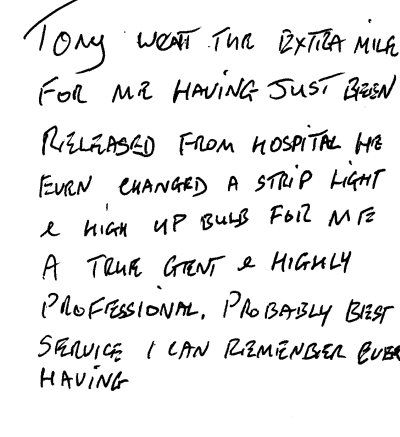 TONY WENT THE EXTRA MILE
FOR ME HAVING JUST BEEN
RELEASED FROM HOSPITAL HE
EVEN CHANGED A STRIP LIGHT
& HIGH UP BULB FOR ME
A TRUE GENT & HIGHLY
PROFESSIONAL. PROBABLY BEST
SERVICE I CAN REMEMBER EVER
HAVING